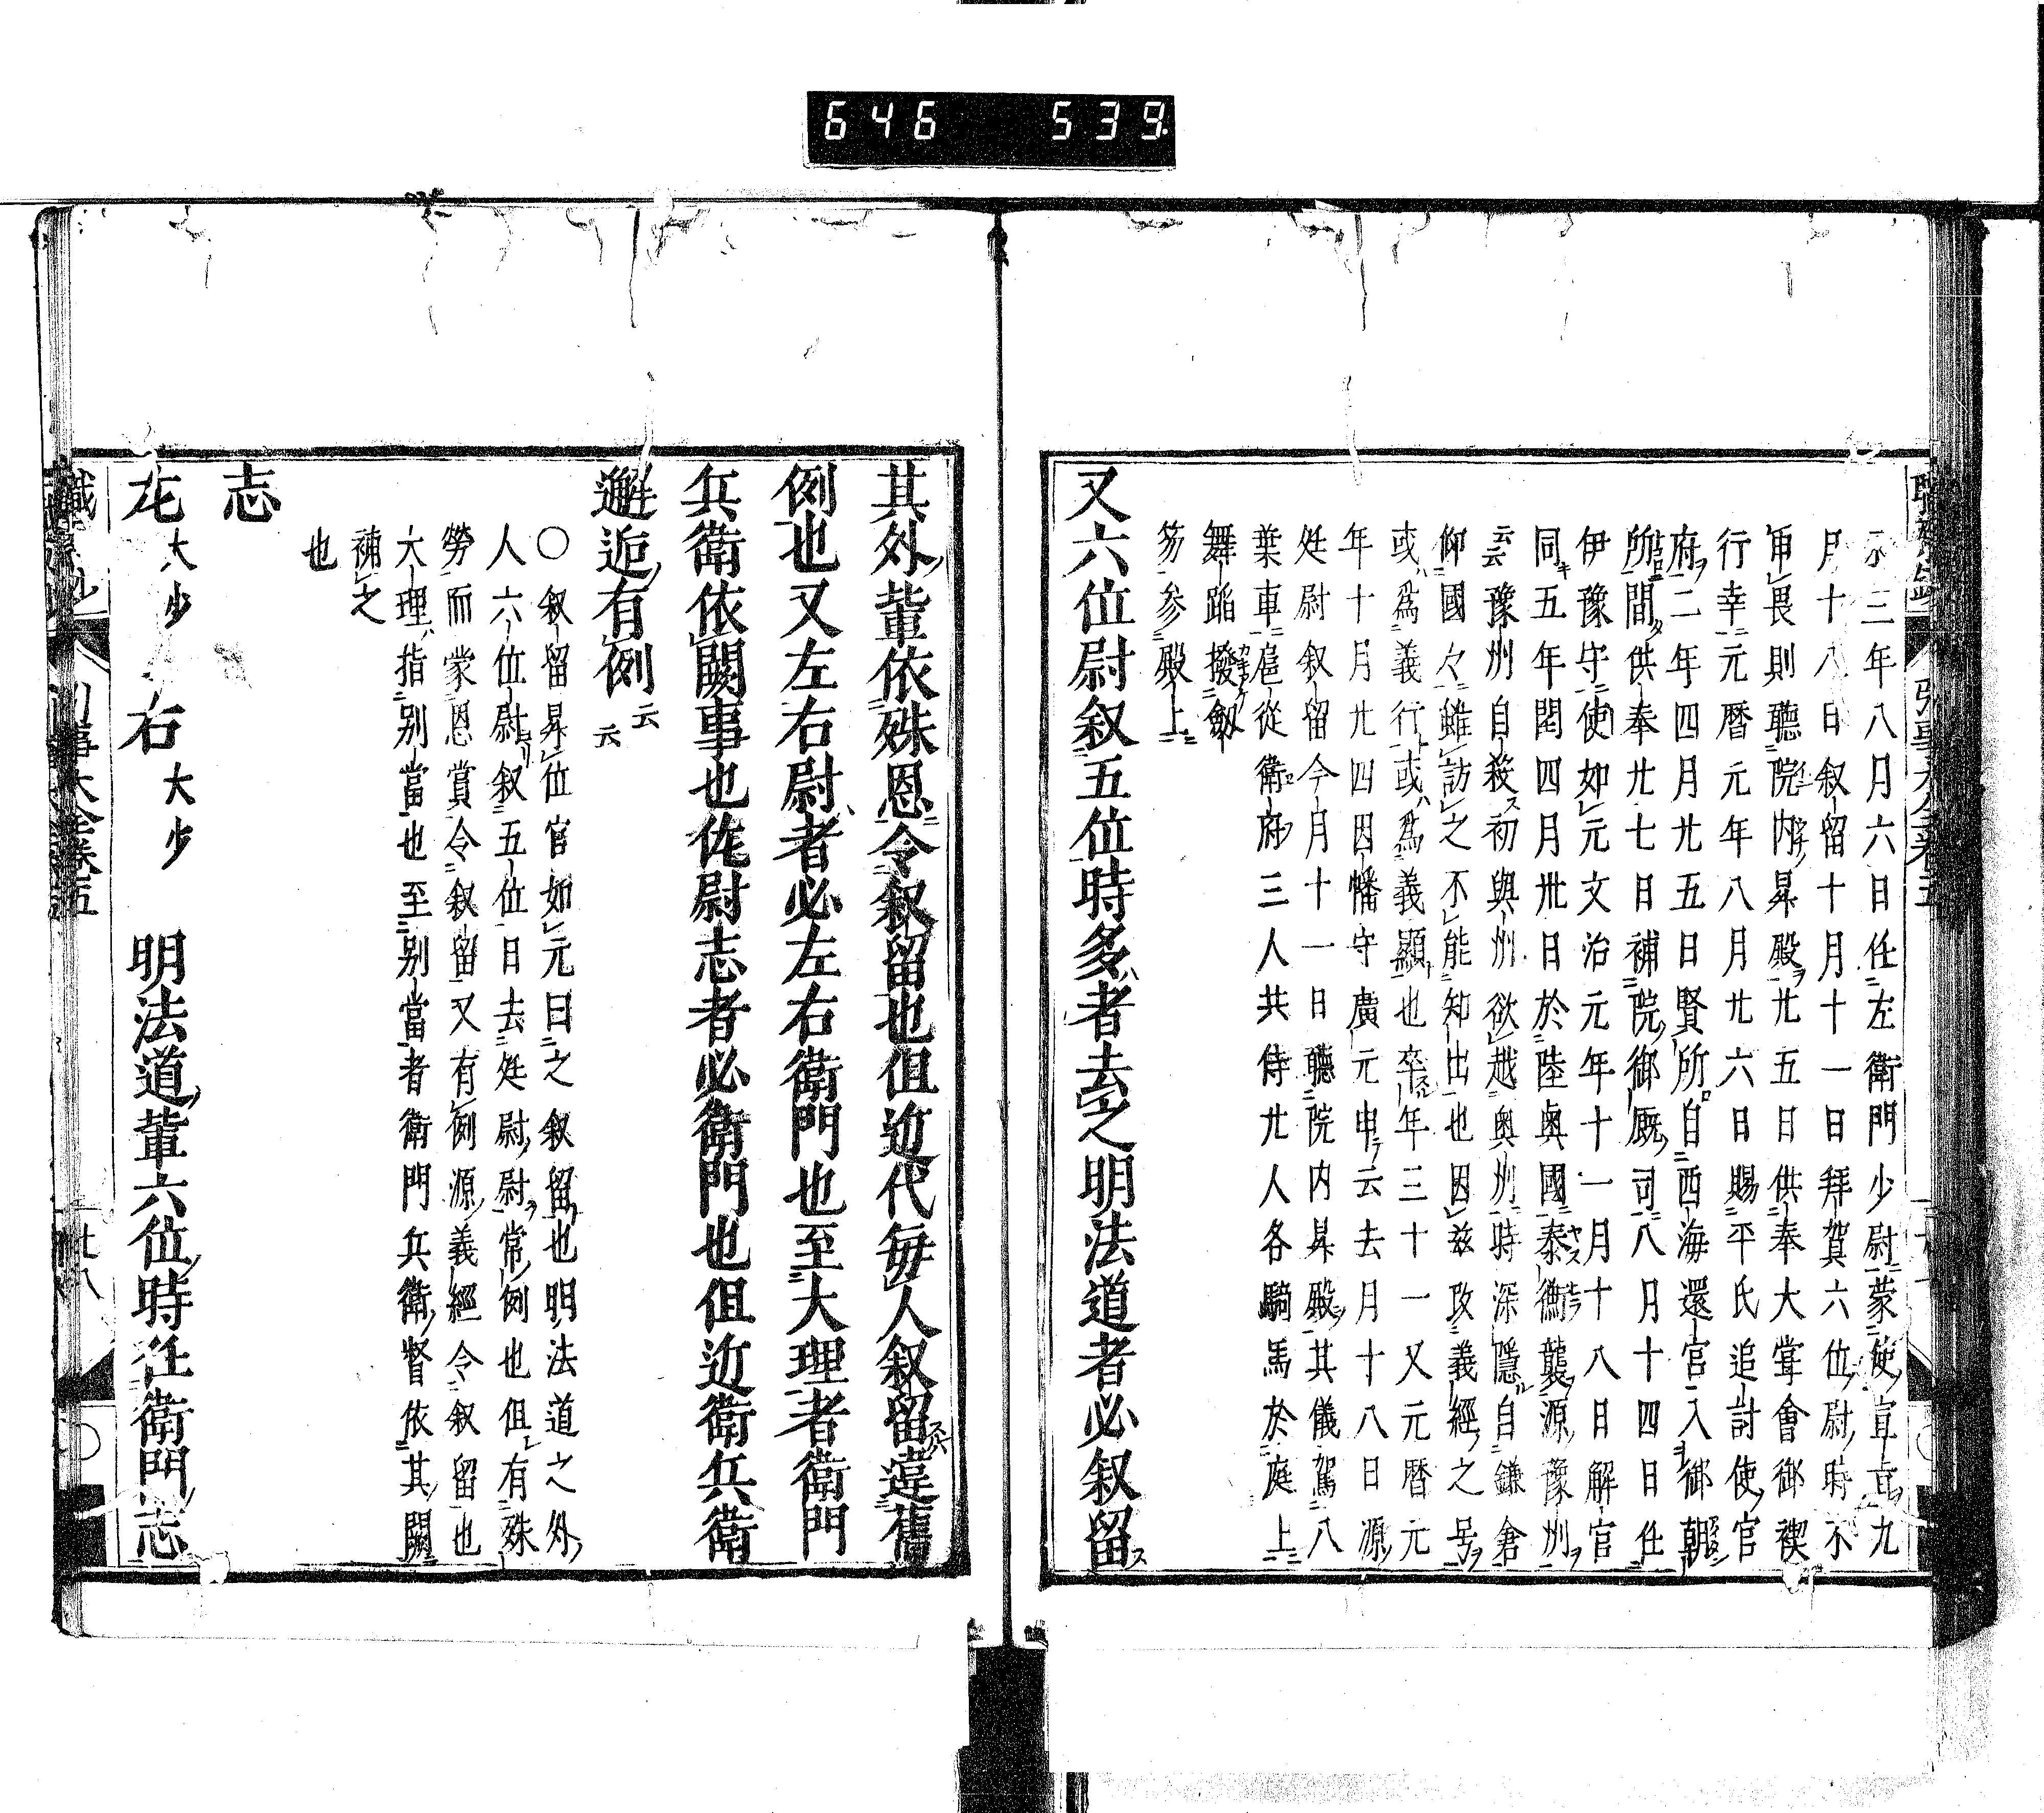 646 539
示三年八月六日任左衛門少尉蒙使宣旨九
月十八日叙留十月十一日拜賀六位尉時不
申畏則聽院内昇殿廿五日供奉大甞會御禊
行幸元暦元年八月廿六日賜平氏追討使官
府二年四月廿五日賢所自西海還宮入御朝
所間供奉廿七日補院御厩司八月十四日任
伊豫守使如元文治元年十一月十八日解官
同五年閏四月卅日於陸奥國泰衡襲源豫州
云云豫州自殺初與州欲越奥州時深隱自鎌倉
仰國々雖訪之不能知出也因兹改義經之号
或爲義行或爲義顯也卒年三十一又元暦元
年十月廿四日因幡守廣元申云去月十八日源
廷尉叙留今月十一日聽院内昇殿其儀駕八
葉車扈從衛府三人共侍廿人各騎馬於庭上
舞蹈撥劔
笏参殿上
又六位尉叙五位時多者去之明法道者必叙留
其外輩依殊恩令叙留也但近代毎人叙留違舊
例也又左右尉者必左右衛門也至大理者衛門
兵衛依闕事也佐尉志者必衛門也但近衛兵衛
邂逅有例云云
〇叙留昇位官如元曰之叙留也明法道之外
人六位尉叙五位日去廷尉尉常例也但有殊
勞而蒙恩賞令叙留又有例源義經令叙留也
大理指别當也至别當者衛門兵衛督依其闕
補之
也
志
左大少 右大少 明法道輩六位時任衛門志